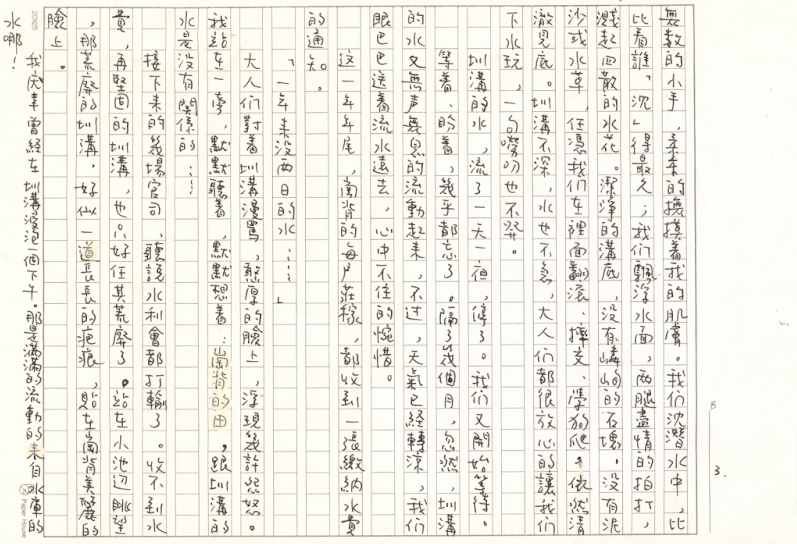 無数的小手，柔柔的撫摸着我的肌膚。我们沈潛水中，比
比看誰「沈」得最久；我们飄浮水面，両腿盡情的拍打，
濺起四散的水花。潔浄的溝底，没有嶙峋的石塊，没有泥
沙或水草，任憑我们在裡面翻滾、摔交、學狗爬，依然清
澈見底。圳溝不深，水也不急，大人们都很放心的讓我们
下水玩，一句嘮叨也不発。
圳溝的水，流了一天一夜，停了。我们又開始等待。
等着、盼着，幾乎都忘了。隔了幾個月，忽然，圳溝
的水又無声無息的流動起来，不过，天氣已経轉涼，我们
眼巴巴送着流水遠去，心中不住的惋惜。
這一年年尾，崗背的每戸莊稼，都收到一張繳納水費
的通知。
「一年来没両日的水……」
大人们對着圳溝漫罵，憨厚的臉上，浮現幾許怨怒。
我站在一旁，默默聽着，默默想着：崗背的田，跟圳溝的
水是没有関係的……
接下来的幾場官司，聽説水利會都打輸了。收不到水
費，再堅固的圳溝，也只好任其荒廢了。站在小池辺眺望
，那荒廢的圳溝，好似一道長長的疤痕，貼在崗背美麗的
臉上。
我慶幸曾経在圳溝浸泡一個下午。那是満満的流動的来自水庫的
水哪！
3.
20×25
Paper House